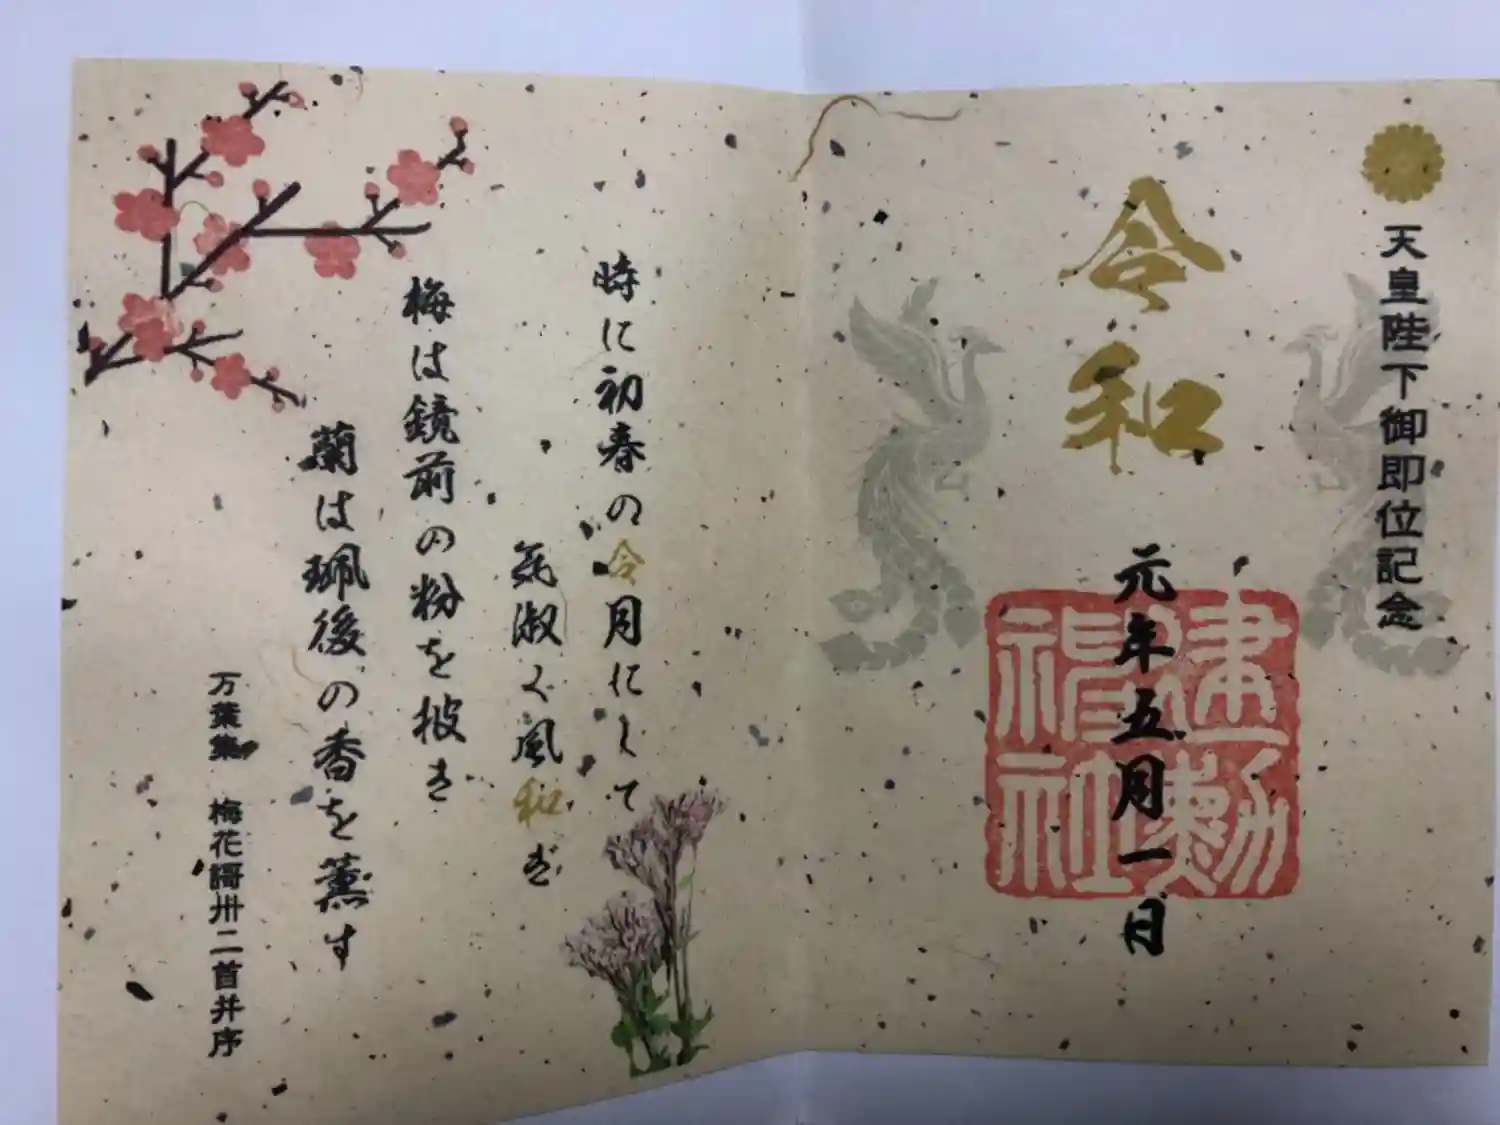 天皇陛下御即位記念
令和
元年五月一日
建勲神社
時に初春の令月にして
氣淑く風和ぎ
梅は鏡前の粉を披き
蘭は珮後の香を薫す
万葉集 梅花謌卅二首并序